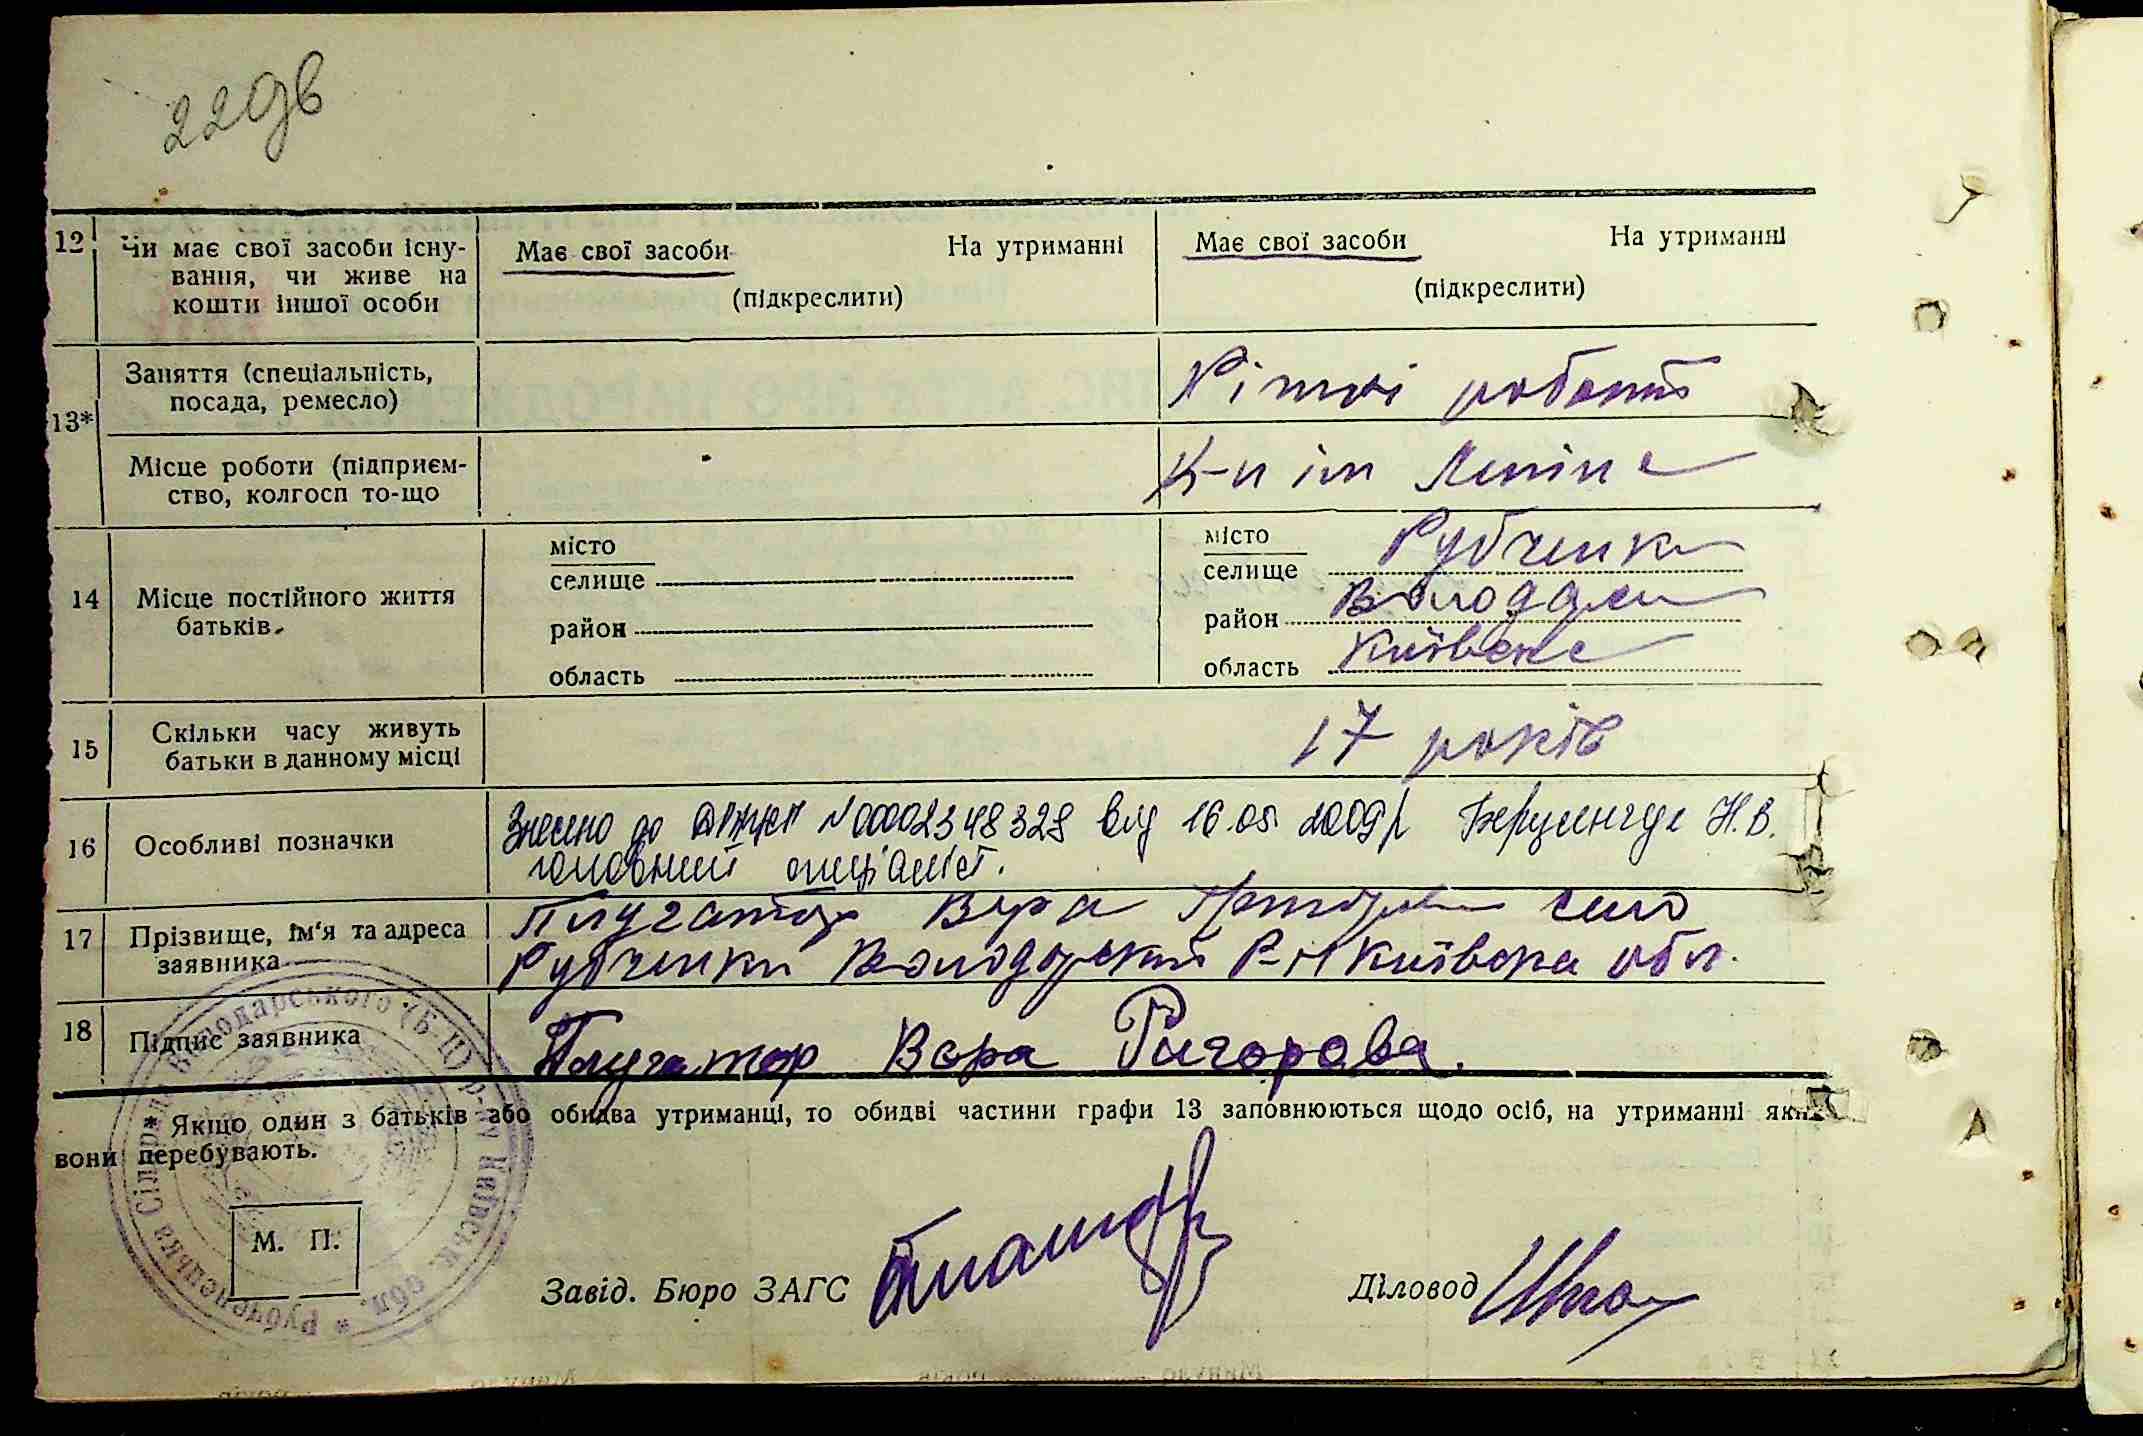 22дв
12 Чи має свої засоби існу-
вання, чи живе на
кошти іншої особи
Має свої засоби На утриманні
(підкреслити)
Має свої засоби На утриманні
(підкреслити)
13*
Заняття (спеціальність,
посада, ремесло)
Різної роботи
Місце роботи (підприєм-
ство, колгосп то-що
К-п ім Леніна
14 Місце постійного життя
батьків.
місто
селище
район
область
місто
селище Рубченки
район Володарс
область Київська
15 Скільки часу живуть
батьки в данному місці
17 років
16 Особливі позначки
Внесено до N00002348328 від 16.05 2009р Н.В.
головний спеціаліст.
17 Прізвище, ім'я та адреса
заявника
Плугатор Вера село
Рубченки Володарський Р-н Київська обл.
18 Підпис заявника
Плугатор Вера Ригорова.
* Якщо один з батьків або обидва утриманці, то обидві частини графи 13 заповнюються щодо осіб, на утриманні яких
вони перебувають.
М. П.
Завід. Бюро ЗАГС
Діловод
* Рубченецька Сільр* Володарського (Б-Ц) р-ну Київськ. обл.